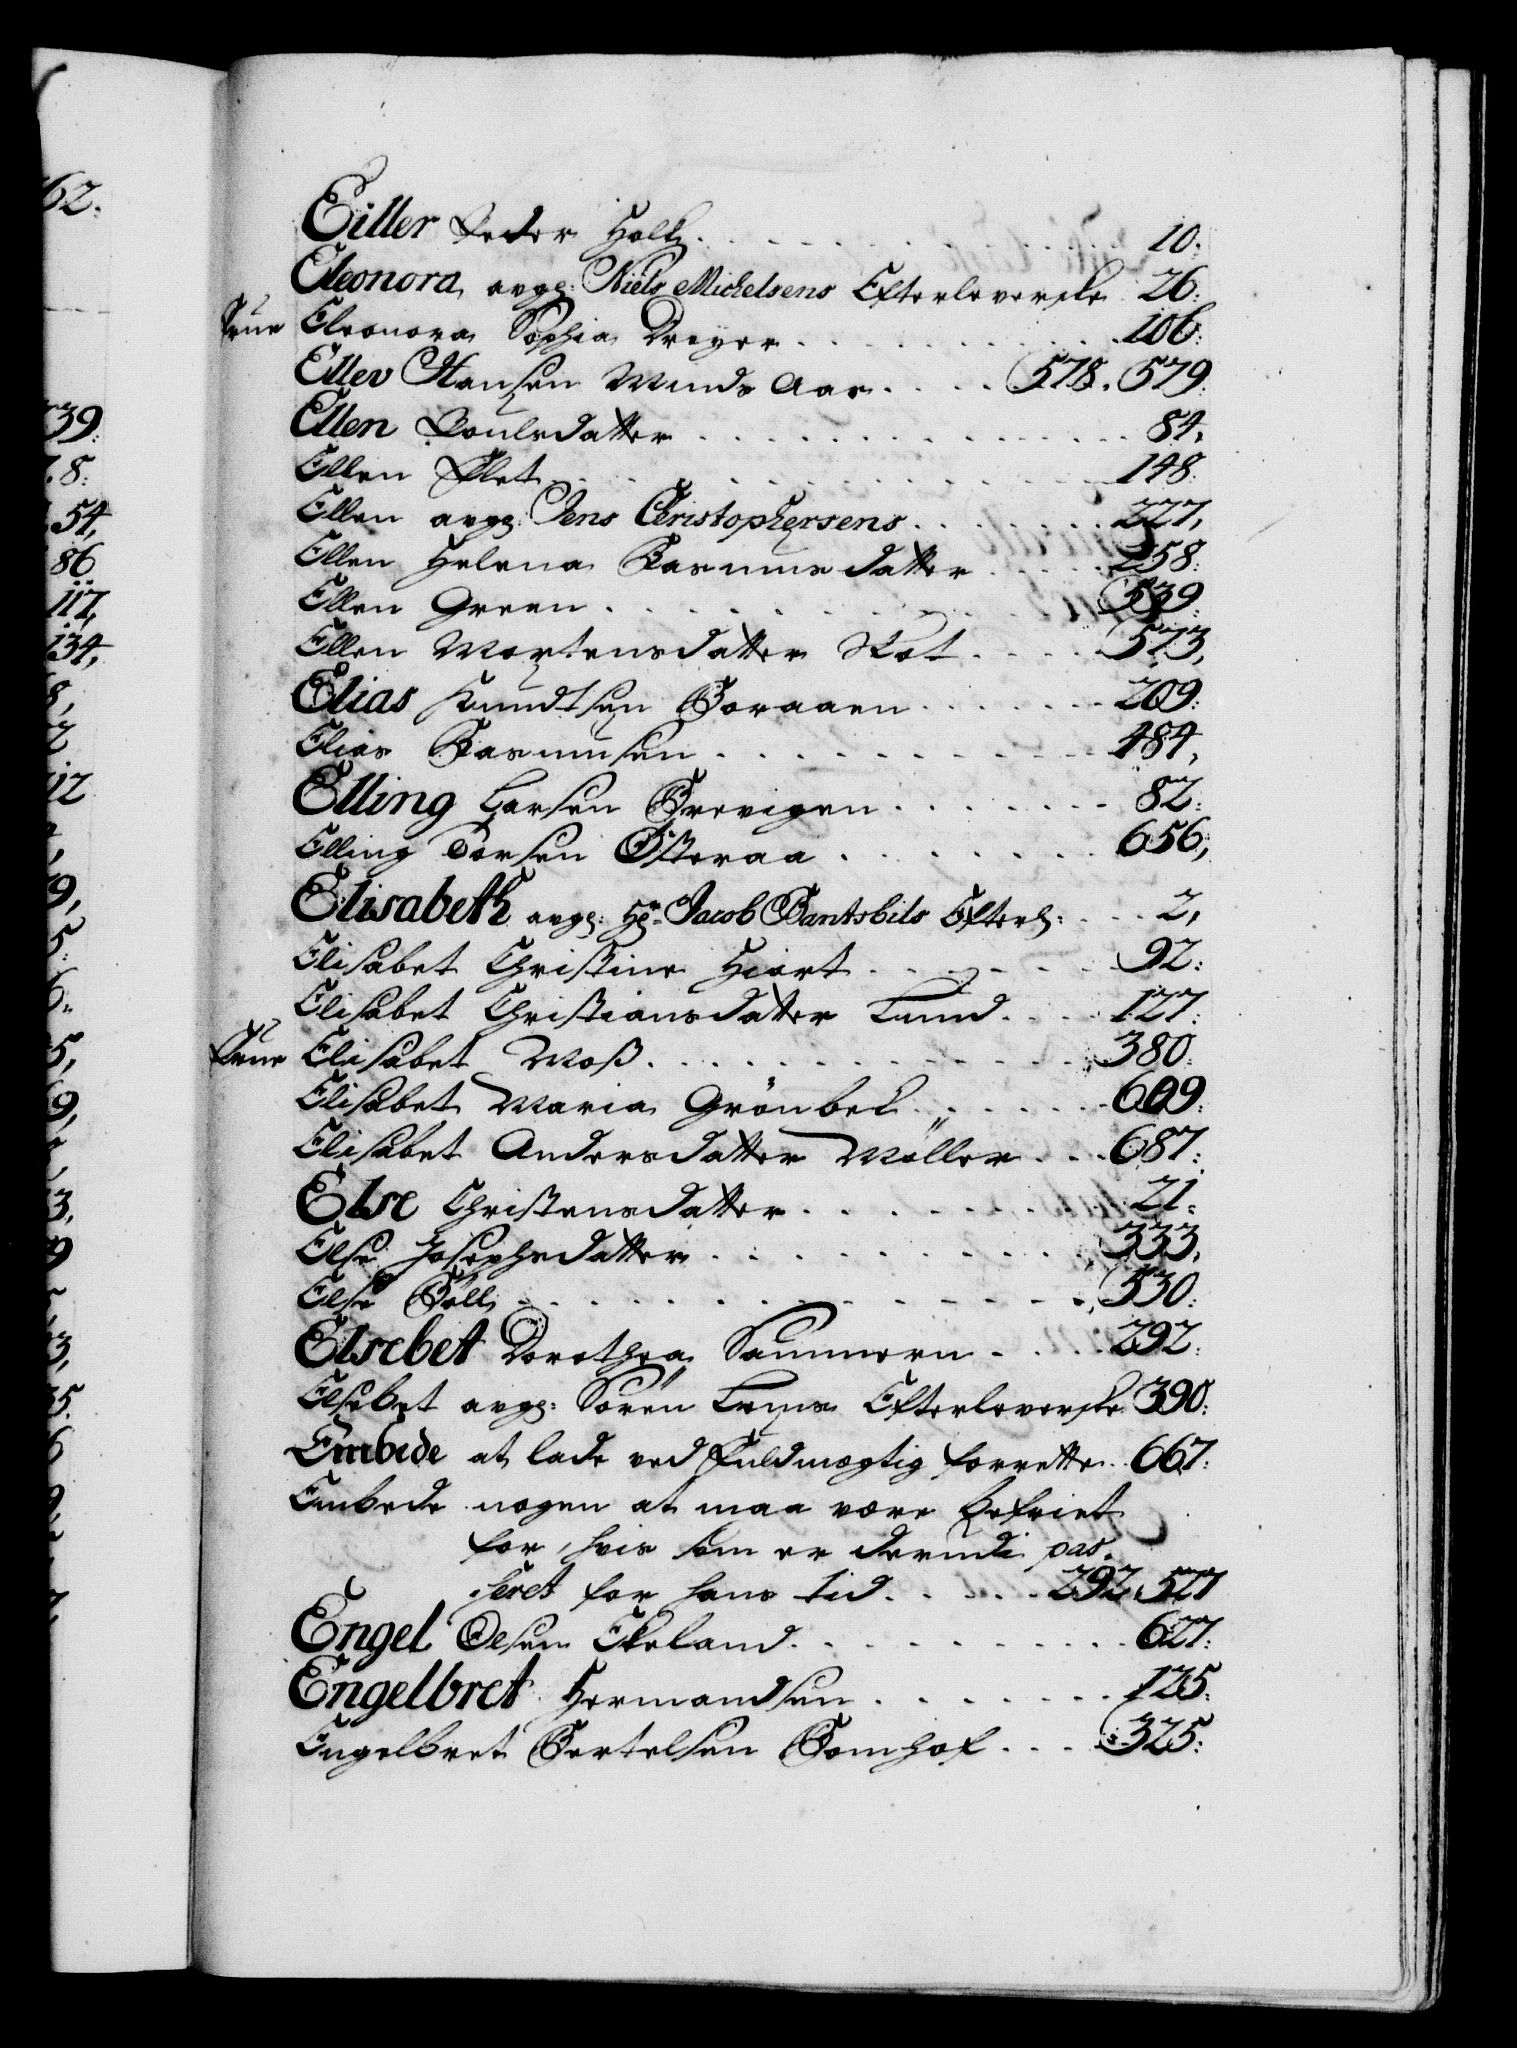 62:
39:
1. 8:
54,
86
117,
134,
8,
2
112
9,
5:
6:
5,
9,
3,
9
3,
5.
6
9
Eiller Peder Holk . . . . . 10:
Eleonora avg: Niels Michelsens Efterleverske 26:
Frue Eleonora Sophia Dreyer . . . . . 106:
Ellev Hansen Winds Aas . . . . 578. 579:
Ellen Poulsdatter . . . . . 84,
Ellen Flet . . . . . 148:
Ellen avg: Jens Christophersens . . . . . 227,
Ellen Helena Rasmusdatter . . . . . 258:
Ellen Green . . . . . 539:
Ellen Mortensdatter Skot . . . . 573,
Elias Knudtsen Boraaen . . . . . 209:
Elias Rasmusen . . . . . 484,
Elling Larsen Brevigen . . . . . 82:
Elling Torsen Østeraa . . . . . 656,
Elisabeth avg: Hr: Jacob Bantsbils Efterl: . . . . 2,
Elisabet Christine Hiort . . . . . 92:
Elisabet Christiansdatter Lund . . . . 127:
Frue Elisabet Moß . . . . . 380:
Elisabet Maria Grönbek . . . . . 609:
Elisabet Andersdatter Møller . . . 687:
Else Christensdatter . . . . . 21:
Else Josephsdatter . . . . . 333,
Else Böll . . . . . 530:
Elsebet Dorothea Sammern . . . . 292:
Elsebet avg: Sören Lems Efterleverske 390:
Embede at lade ved Fuldmægtig forrette . . 667:
Embede nogen at maa være befriet
for, hvis som er derudi pas-
seret for hans tid . . . . . 292, 527
Engel Olsen Ekeland . . . . . 627:
Engelbret Hermandsen . . . . . 125:
Engelbret Bertelsen Bomhof . . . 325: